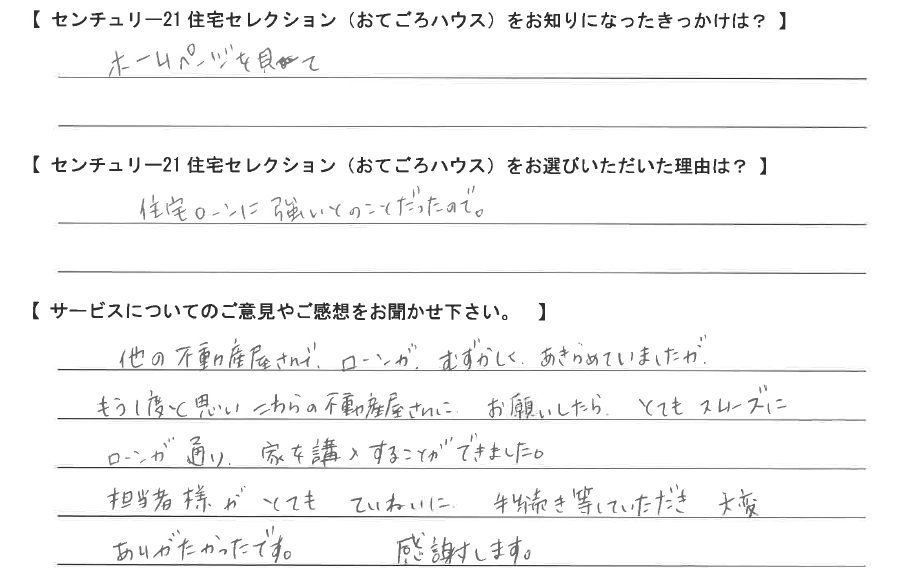 【 センチュリー21住宅セレクション（おてごろハウス）をお知りになったきっかけは？ 】
ホームページを見て
【 センチュリー21住宅セレクション（おてごろハウス）をお選びいただいた理由は？ 】
住宅ローンに強いとのことだったので。
【 サービスについてのご意見やご感想をお聞かせ下さい。 】
他の不動産屋さんで、ローンが、むずかしく、あきらめていましたが、
もう1度と思いこちらの不動産屋さんに、お願いしたら、とてもスムーズに
ローンが通り、家を講入することができました。
担当者様がとても ていねいに、手続き等していただき 大変
ありがたかったです。 感謝します。